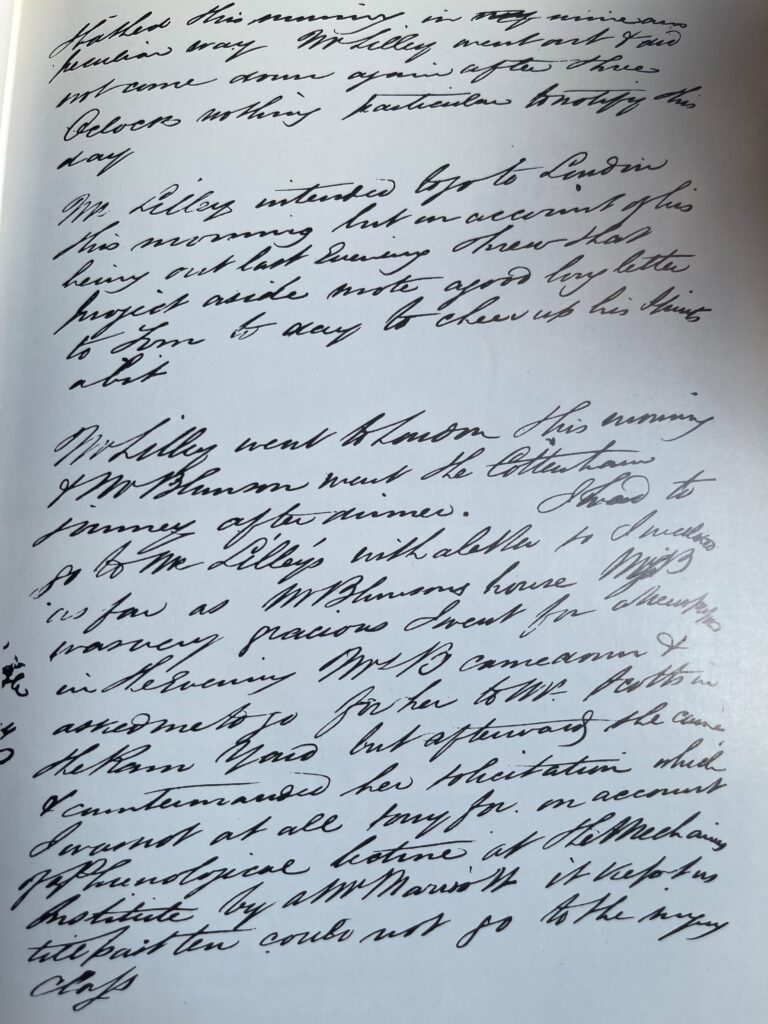 Bathed this morning in my mine own
peculiar way Mr Lilley went out & did
not come down again after three
Oclock nothing particular to notify this
day
Mr Lilley intended to go to London
this morning but on account of his
being out last Evening threw that
project aside wrote a good long letter
to Tom to day to cheer up his spirits
a bit
Mr Lilley went to London this morning
& Mr Blunson went the Cottenham
journey after dinner. I had to
go to Mr Lilley's with a letter so I
as far as Mr Blunsons house Mrs B
was very gracious I went for a Newspaper
in the Evening Mrs B came down &
asked me to go for her to Mr. Scotts in
the Ram Yard but afterwards she came
& countermanded her solicitation which
I was not at all sorry for. on account
of a Phrenological lecture at the Mechanics
Institute by a Mr Marriott it kept us
till past ten could not go to the
class